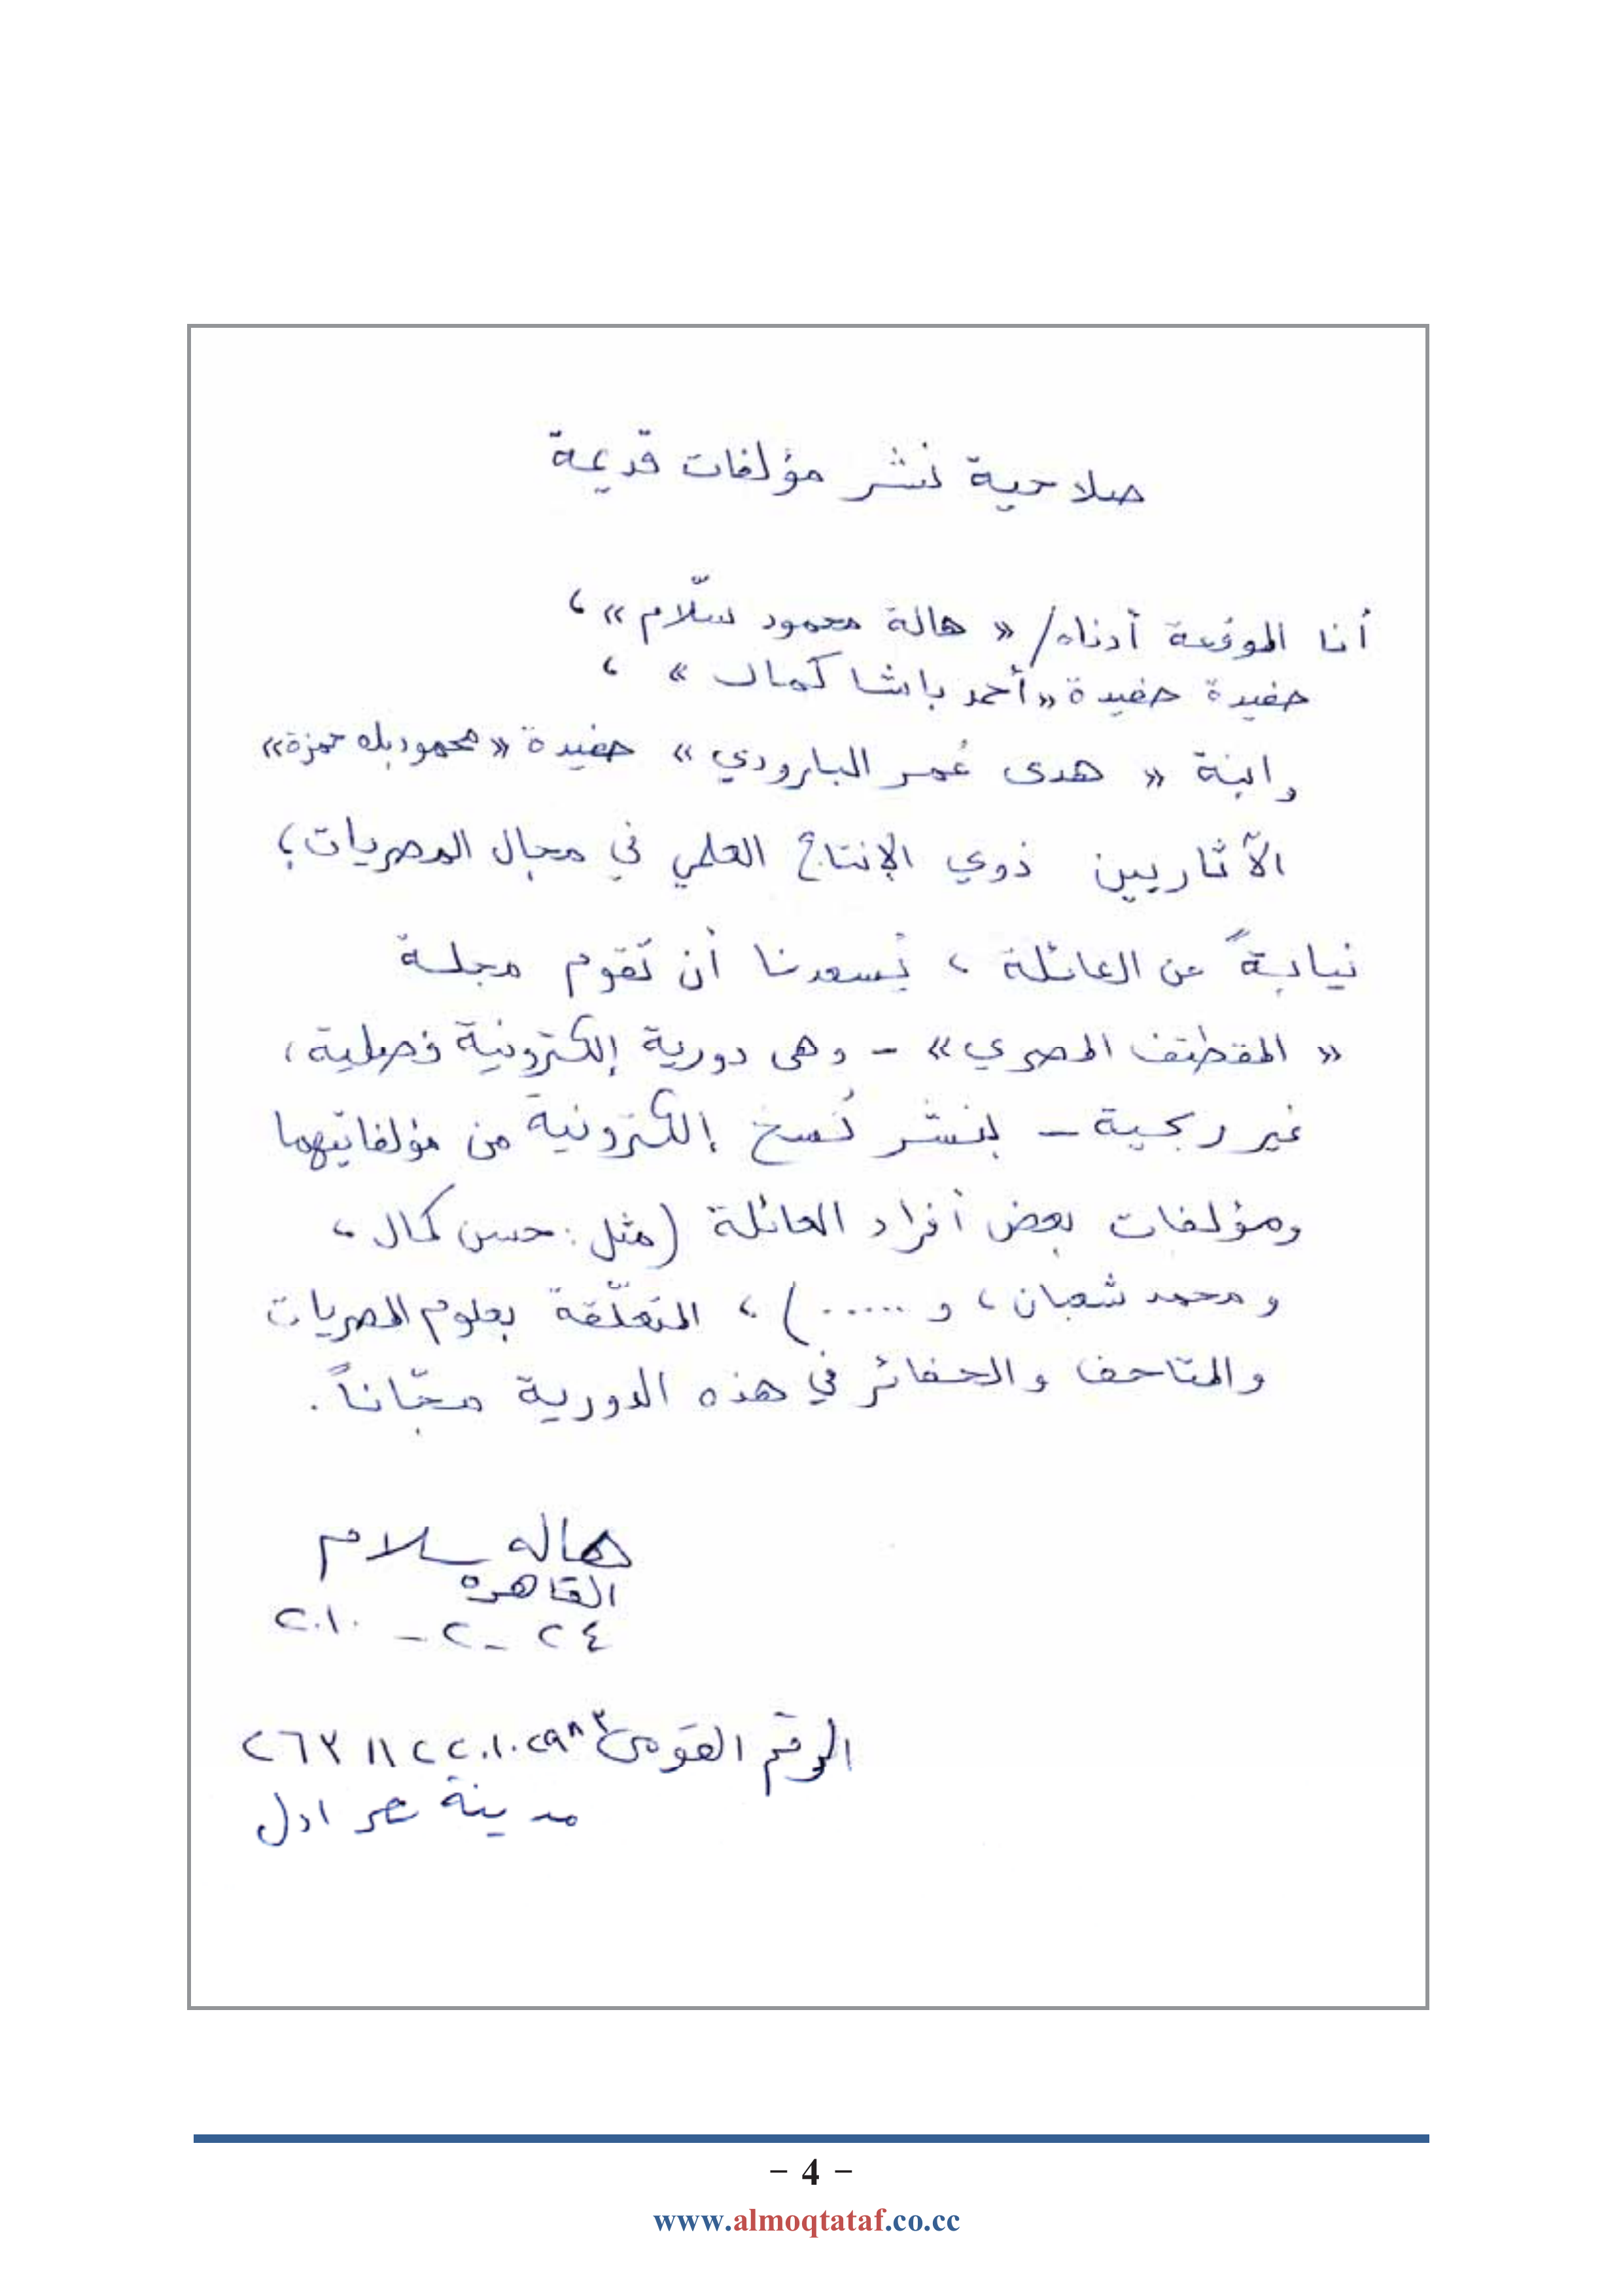 صلاحية نشر مؤلفات قديمة
أنا الموقعة أدناه/ « هالة محمود سلّام » ،
حفيدة حفيدة « أحمد باشا كمال » ،
وابنة « هدى عُمر البارودي » حفيدة « محمود بك حمزة »
الآثاريين ذوي الإنتاج العلمي في مجال المصريات ؛
نيابةً عن العائلة ، يُسعدنا أن تقوم مجلة
« المقطتف المصري » – وهى دورية إلكترونية فصلية ،
غير ربحية – بنشر نُسخ إلكترونية من مؤلفاتيهما
ومؤلفات بعض أفراد العائلة (مثل : حسن كمال ،
ومحمد شعبان ، و ......) ، المتعلّقة بعلوم المصريات
والمتاحف والحفائر في هذه الدورية مجّاناً .
هاله سلام
القاهره
٢٤ - ٢ - ٢٠١٠
الرقم القومى
مدينة نصر اول
- 4 -
www.almoqtataf.co.cc